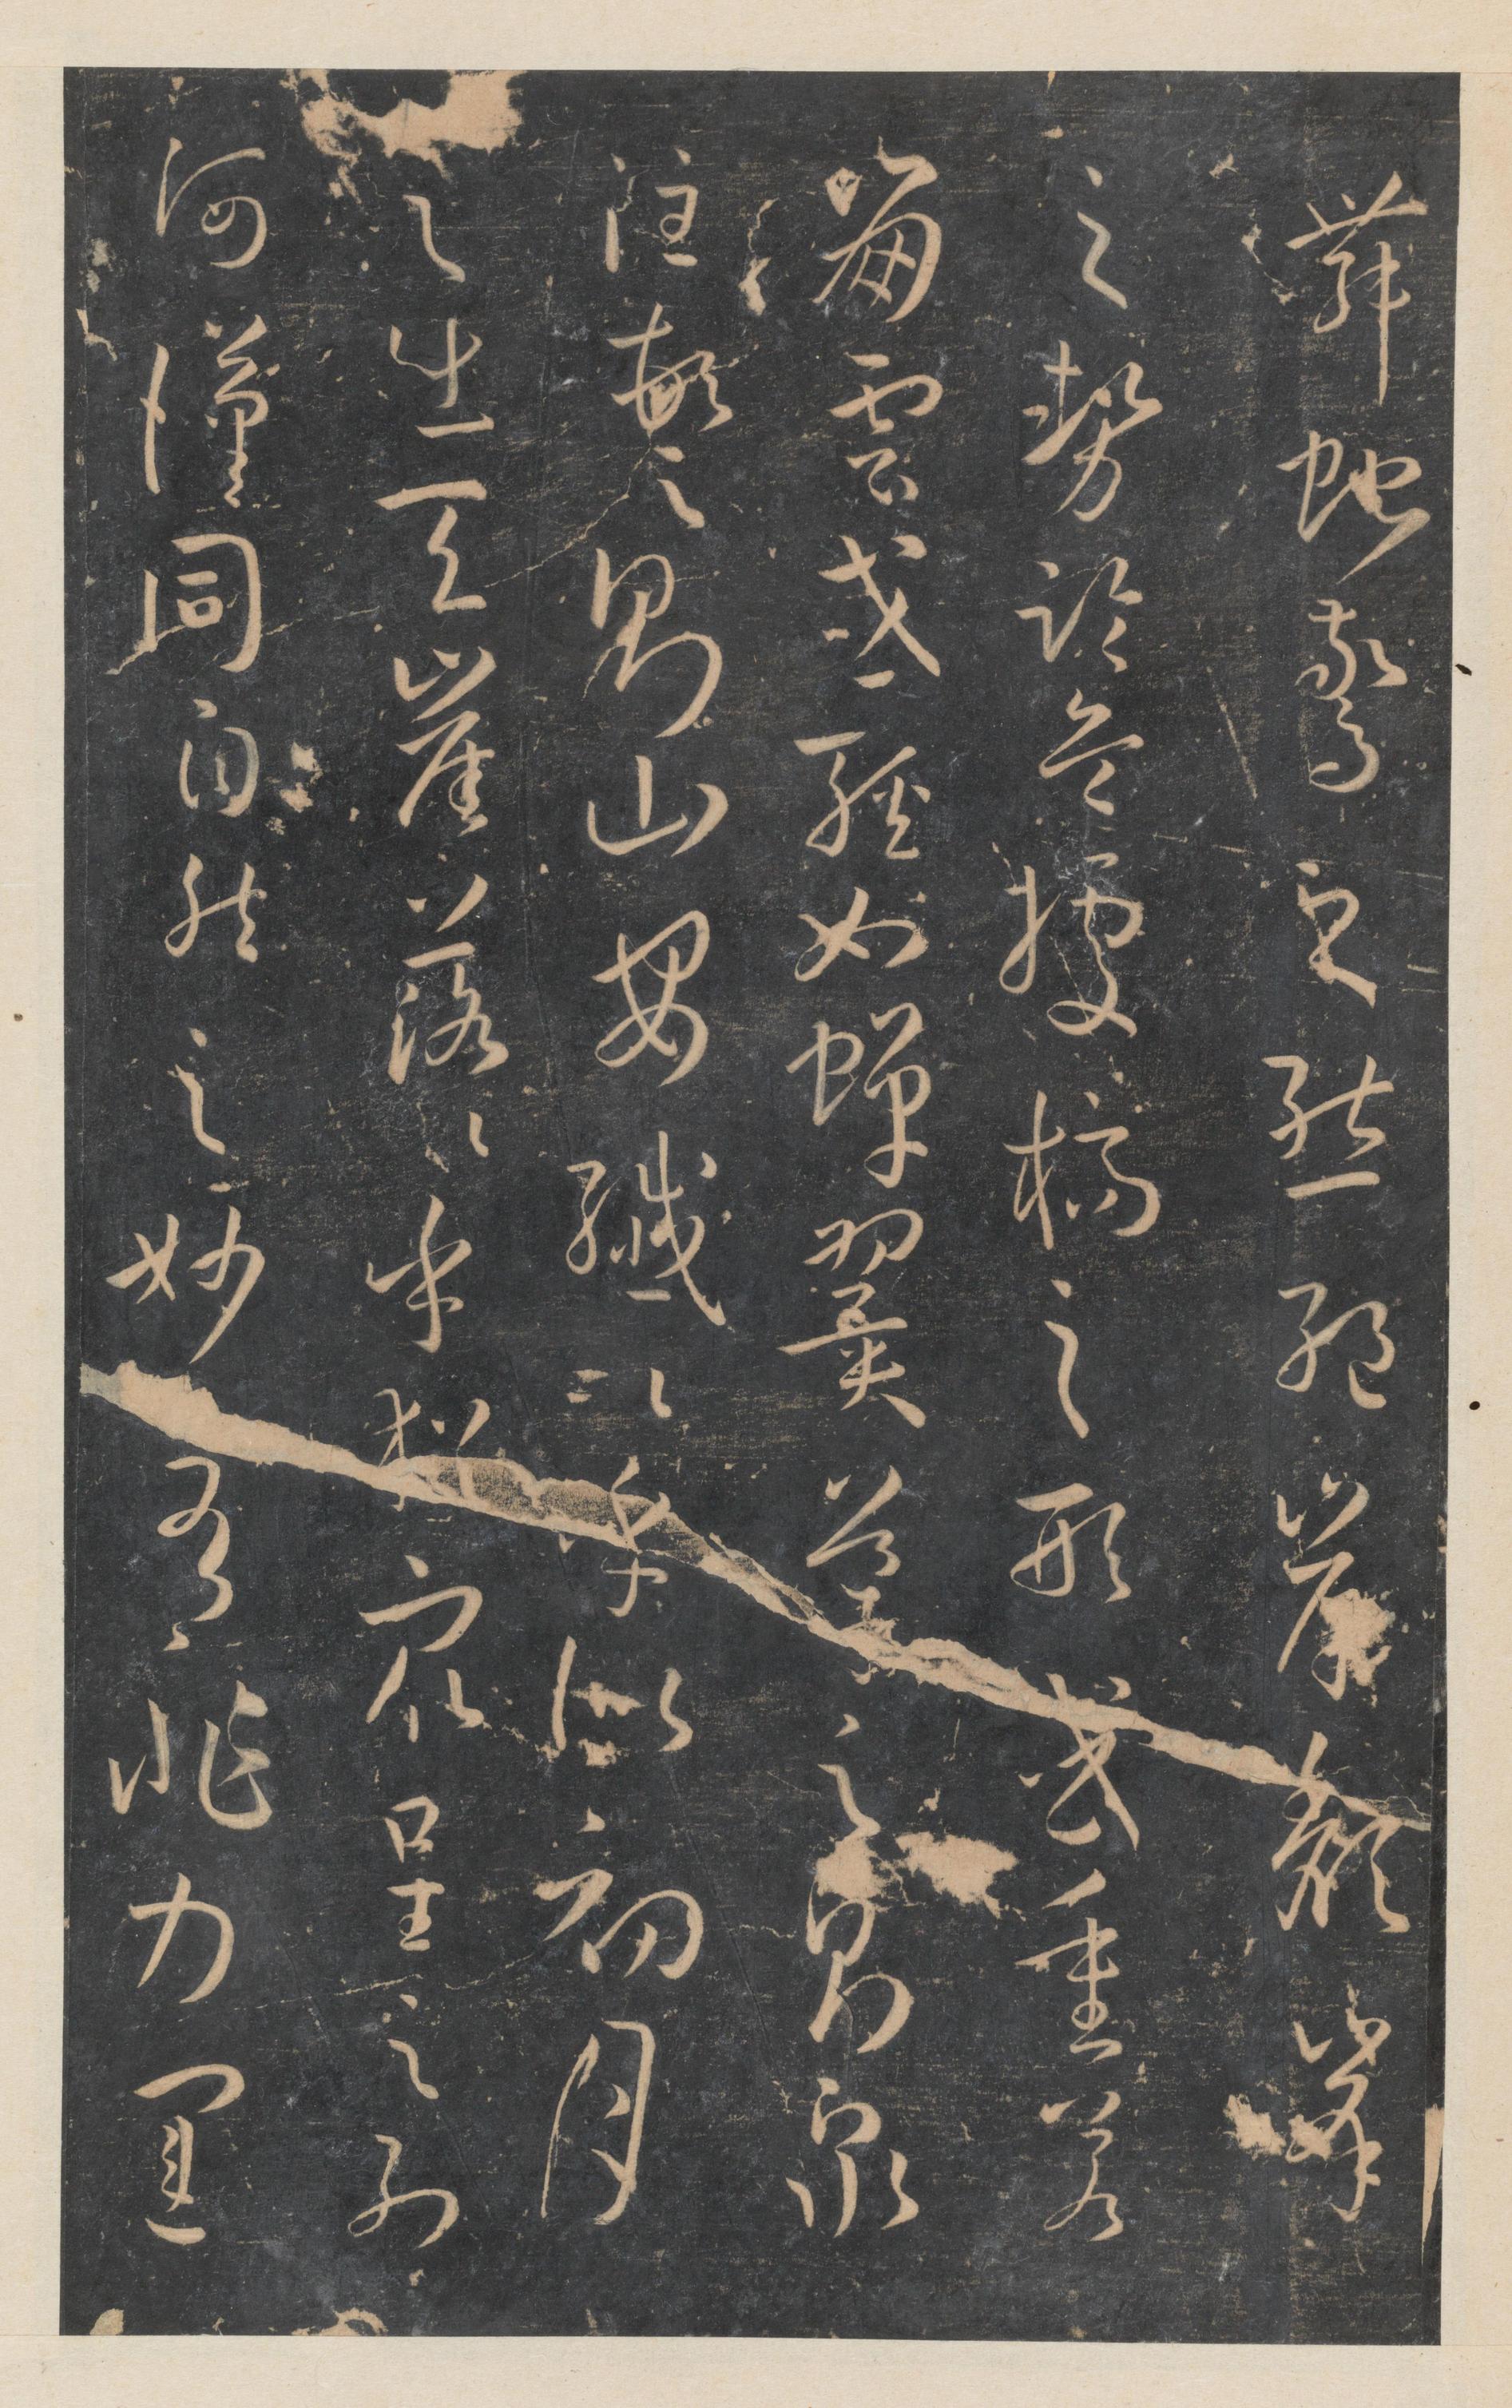 舞蛇驚之態絕岸頹峯
之勢臨危據槁之形或重若
崩雲或輕如蟬翼導之則泉
注頓之則山安纖〻乎似初月
之出天崖落〻乎猶衆星之列
河漢同自然之妙有非力運